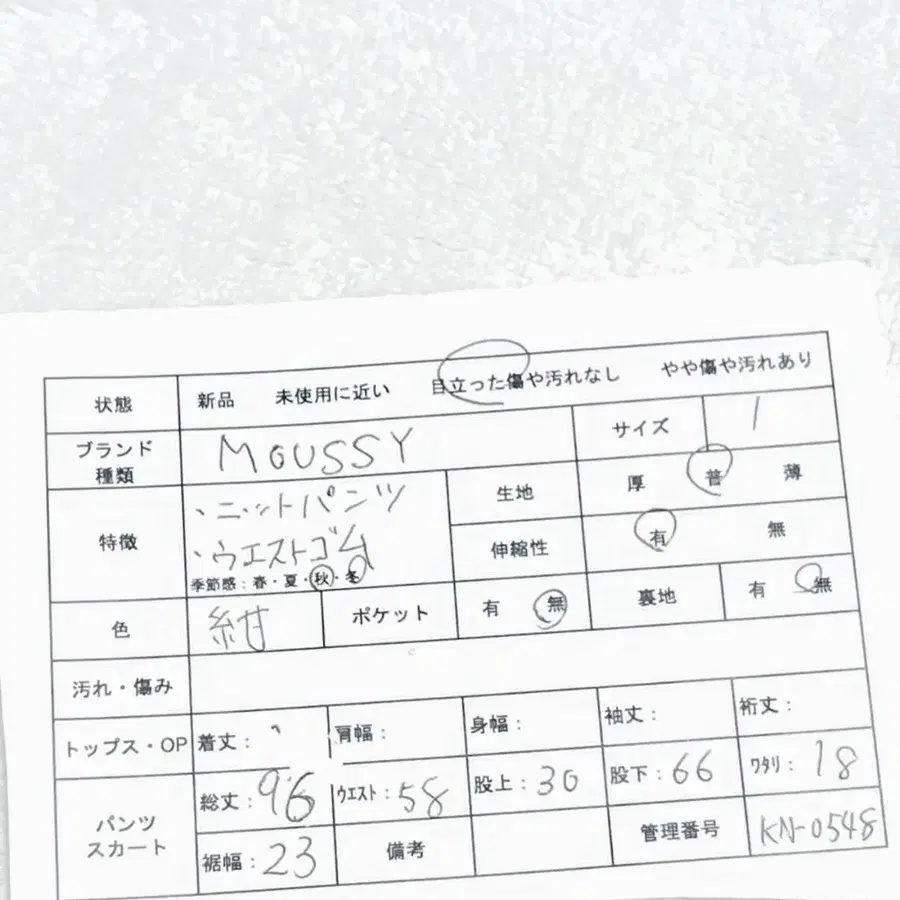 状態 新品 未使用に近い 目立った傷や汚れなし やや傷や汚れあり
ブランド 種類 MOUSSY サイズ 1
特徴 ・ニットパンツ 生地 厚 普 薄
・ウエストゴム 伸縮性 有 無
季節感：春・夏・秋・冬
色 紺 ポケット 有 無 裏地 有 無
汚れ・傷み
トップス・OP 着丈： 肩幅： 身幅： 袖丈： 裄丈：
パンツ スカート 総丈：96 ウエスト：58 股上：30 股下：66 ワタリ：18
裾幅：23 備考 管理番号 KN-0548